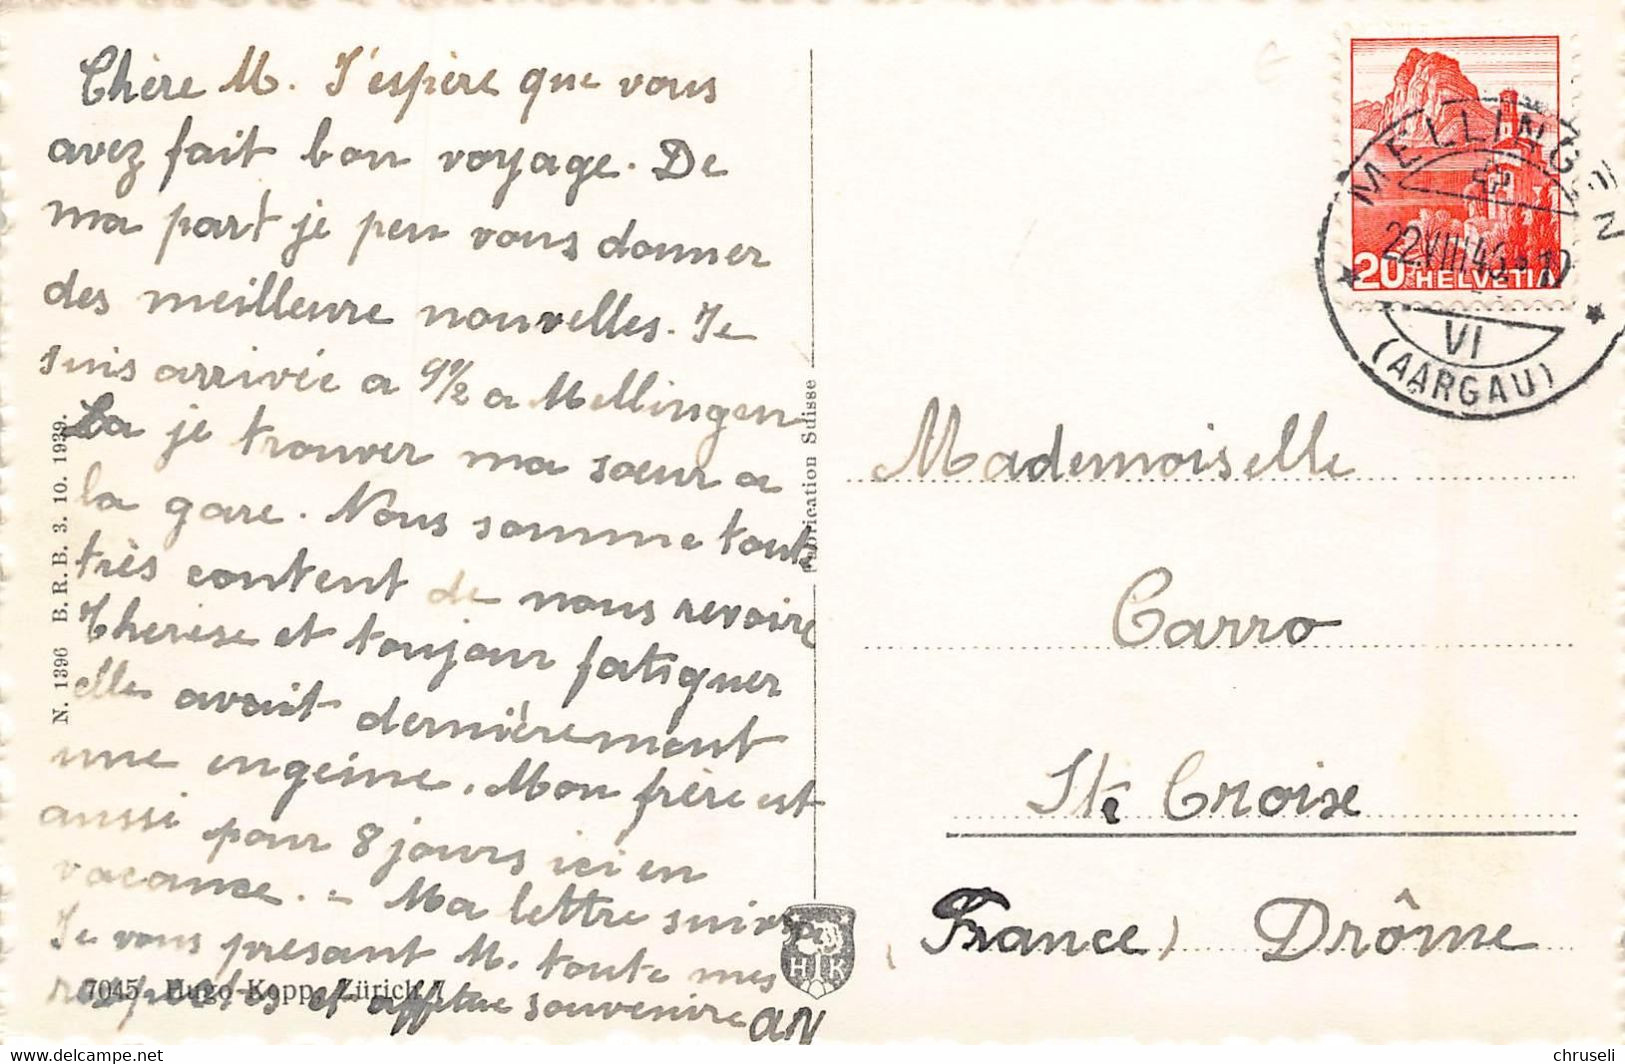 Chère M. J'espère que vous
avez fait bon voyage. De
ma part je peu vous donner
des meilleure nouvelles. Je
suis arrivée a 9½ a Mellingen
La je trouver ma sœur a
la gare. Nous somme touts
très content de nous revoire
Therese et toujour fatiguer
elle avait dernièrement
une engeine. Mon frère est
aussi pour 8 jours ici en
vacance. – Ma lettre suivra
Je vous présant M. toute mes
respectes et affttue souvenire
AN
N. 1396 B. R. B. 3. 10. 1939.
7045 Hugo Kopp, Zürich 7
Fabrication Suisse
H K
20 HELVETIA
MELLINGEN
22.VIII.46
VI
(AARGAU)
Mademoiselle
Carro
Ste Croixe
(France) Drôme
chruseli
delcampe.net